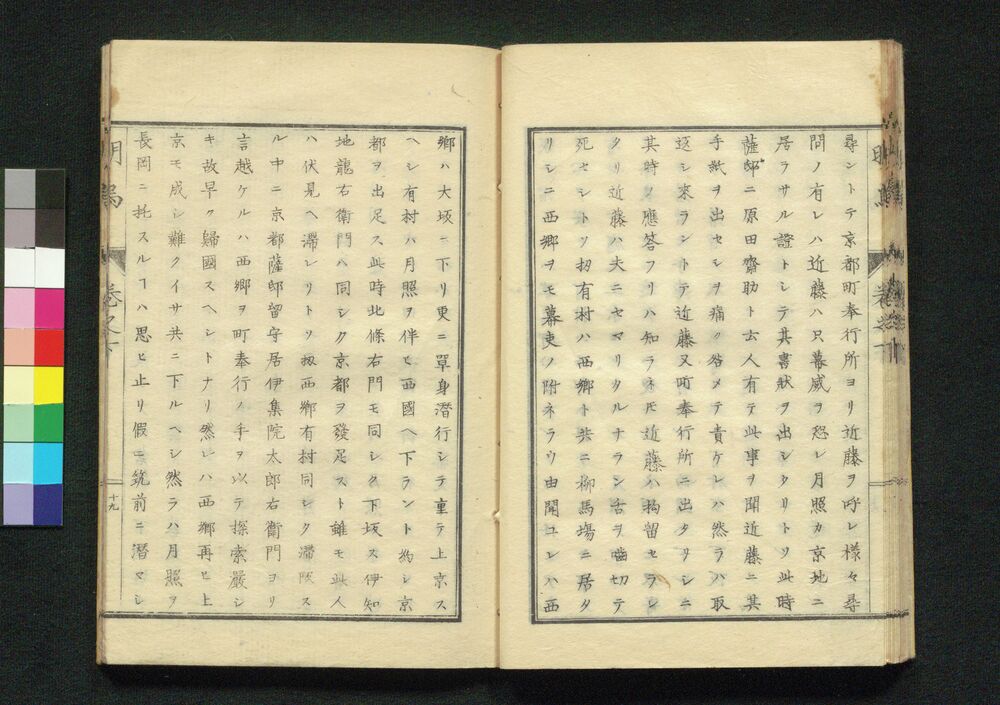 尋ントテ京都町奉行所ヨリ近藤ヲ呼レ様々尋
問ノ有レハ近藤ハ只幕威ヲ恐レ月照カ京地ニ
居ラサル證トシテ其書狀ヲ出シタリトソ此時
薩邸ニ原田齋助ト云人有テ此事ヲ聞近藤ニ其
手紙ヲ出セシヲ痛ク咎メテ責ケレハ然ラハ取
返シ來ラントテ近藤又町奉行所ニ出タリシニ
其時ノ應答フリハ知ラネ𪜈近藤ハ拘留セラレ
タリ近藤ハ夫ニセマリタルナラン舌ヲ嚙切テ
死セシトソ扨有村ハ西鄕ト共ニ柳馬場ニ居タ
リシニ西鄕ヲモ幕吏ノ附ネラウ由聞ユレハ西
鄕ハ大坂ニ下リ更ニ單身潛行シテ重テ上京ス
ヘシ有村ハ月照ヲ伴ヒ西國ヘ下ラント約シ京
都ヲ出足ス此時北條右門モ同シク下坂ス伊知
地龍右衛門ハ同シク京都ヲ發足スト雖モ此人
ハ伏見ヘ滯レリトソ扨西鄕有村同シク滯阪ス
ル中ニ京都薩邸留守居伊集院太郎右衛門ヨリ
言越ケルハ西鄕ヲ町奉行ノ手ヲ以テ探索嚴シ
キ故早ク歸國スヘシトナリ然レハ西鄕再ヒ上
京モ成シ難クイサ共ニ下ルヘシ然ラハ月照ヲ
長岡ニ托スルヿハ思ヒ止リ假ニ筑前ニ潛マシ
卷之下
十九